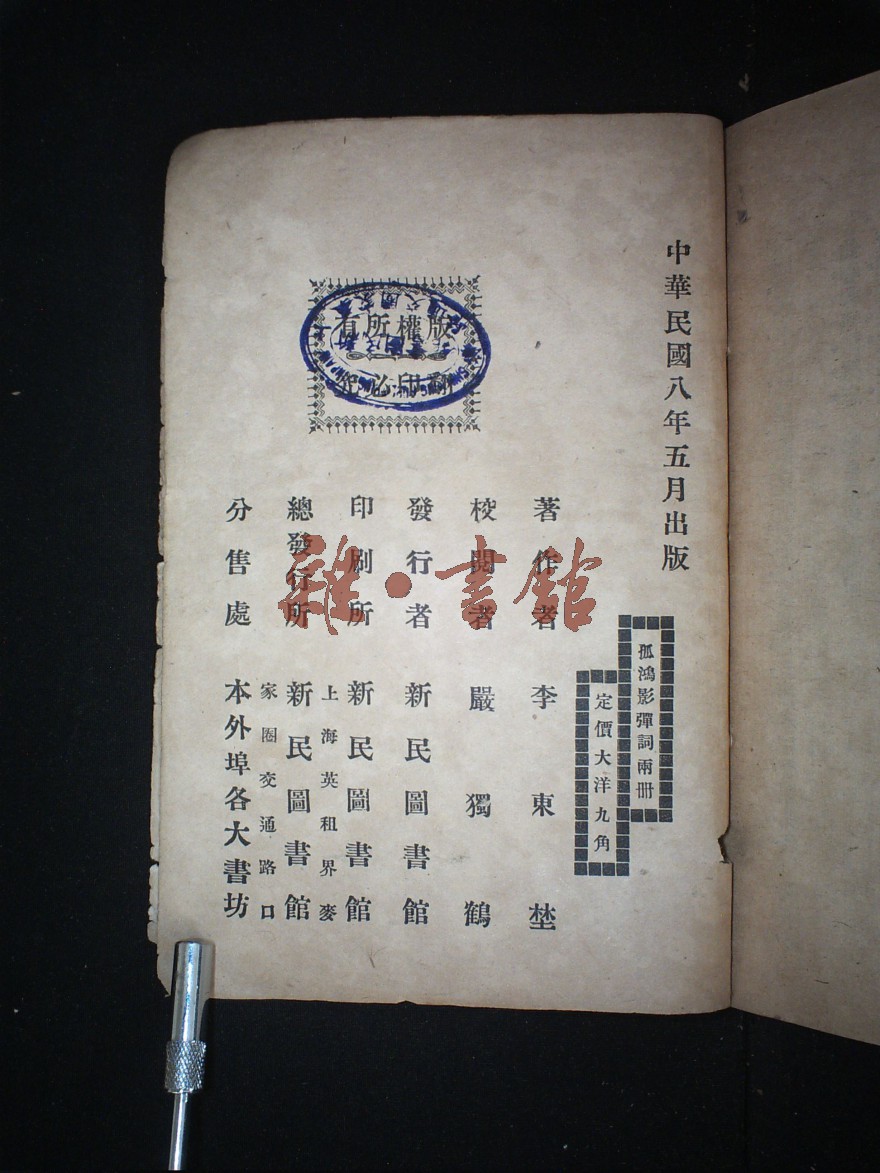 中華民國八年五月出版
孤鴻影彈詞兩册
定價大洋九角
著作者 李東埜
校閱者 嚴獨鶴
發行者 新民圖書館
印刷所 新民圖書館
總發行所 上海英租界麥家圈交通路口 新民圖書館
分售處 本外埠各大書坊
版權所有
翻印必究
雜·書館